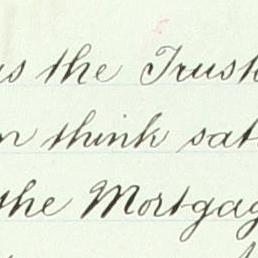 us the Trust
n think sat
the Mortgag